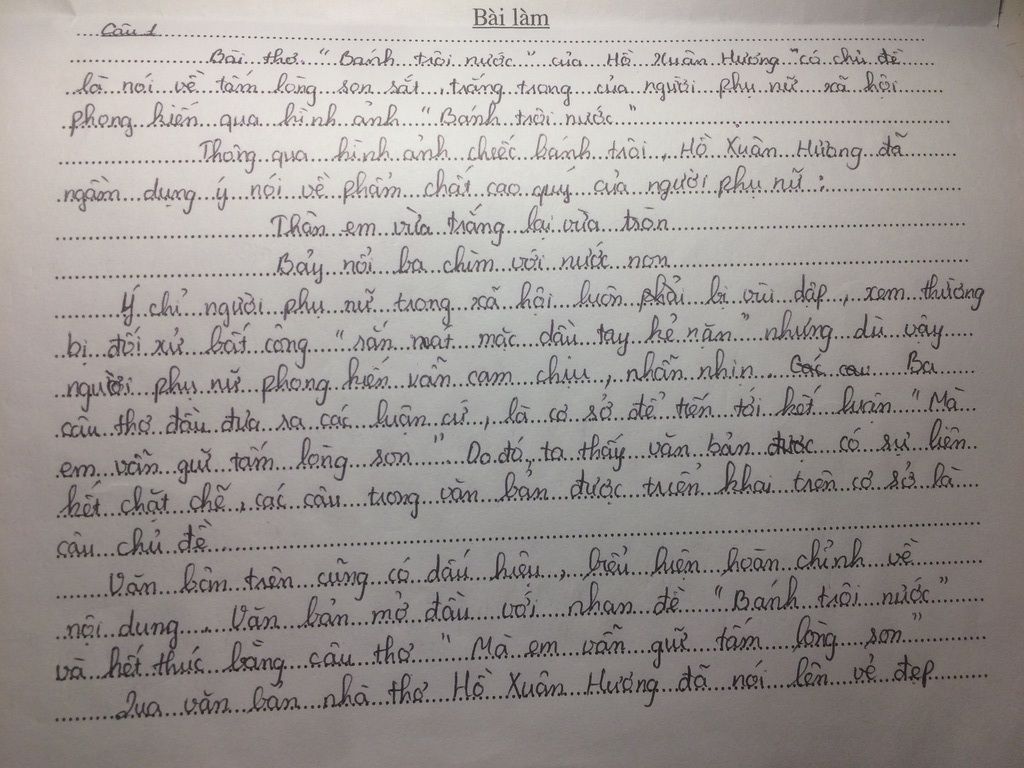 Bài làm
Câu 1
Bài thơ "Bánh trôi nước" của Hồ Xuân Hương "có chủ đề
là nói về tấm lòng son sắt, trắng trong của người phụ nữ xã hội
phong kiến qua hình ảnh "Bánh trôi nước"
Thông qua hình ảnh chiếc bánh trôi, Hồ Xuân Hương đã
ngầm dụng ý nói về phẩm chất cao quý của người phụ nữ:
Thân em vừa trắng lại vừa tròn
Bảy nổi ba chìm với nước non
Ý chỉ người phụ nữ trong xã hội luôn phải bị vùi dập, xem thường
bị đối xử bất công "rắn nát mặc dầu tay kẻ nặn" nhưng dù vậy
người phụ nữ phong kiến vẫn cam chịu, nhẫn nhịn. Ba
câu thơ đầu đưa ra các luận cứ, là cơ sở để tiến tới kết luận "Mà
em vẫn giữ tấm lòng son" Do đó, ta thấy văn bản có sự liên
kết chặt chẽ, các câu trong văn bản được triển khai trên cơ sở là
câu chủ đề
Văn bản trên cũng có dấu hiệu, biểu hiện hoàn chỉnh về
nội dung. Văn bản mở đầu với nhan đề "Bánh trôi nước"
và kết thúc bằng câu thơ "Mà em vẫn giữ tấm lòng son"
Qua văn bản nhà thơ Hồ Xuân Hương đã nói lên vẻ đẹp